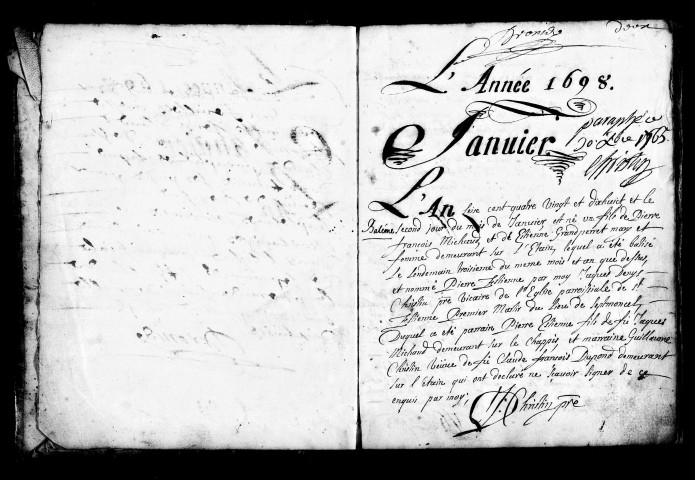 L'Année 1698.
Janvier.
paraphé ce
30 1765
L'An seize cent quatre vingt et dixhuict et le
Batême second jour du mois de Janvier est né un fils de Pierre
françois Michaud et de Etienne Grandperret mary et
femme demeurant sur l'Etain, lequel a été batisé
le lendemain troisieme du meme mois et an que dessus,
et nommé Pierre Estienne par moy Jaques Denys
Christin pre vicaire de l'Eglise parroissiale de st
Estienne Premier Martir du lieu de Septmoncel,
Duquel a été parrain Pierre Etienne fils de fü Jaques
Michaud demeurant sur le Chappis et marraine Guillauma
Christin veüve de fü Claude françois Dupond demeurant
sur l'Etain qui ont declaré ne sçavoir signer de ce
enquis par moy;
Christin pre